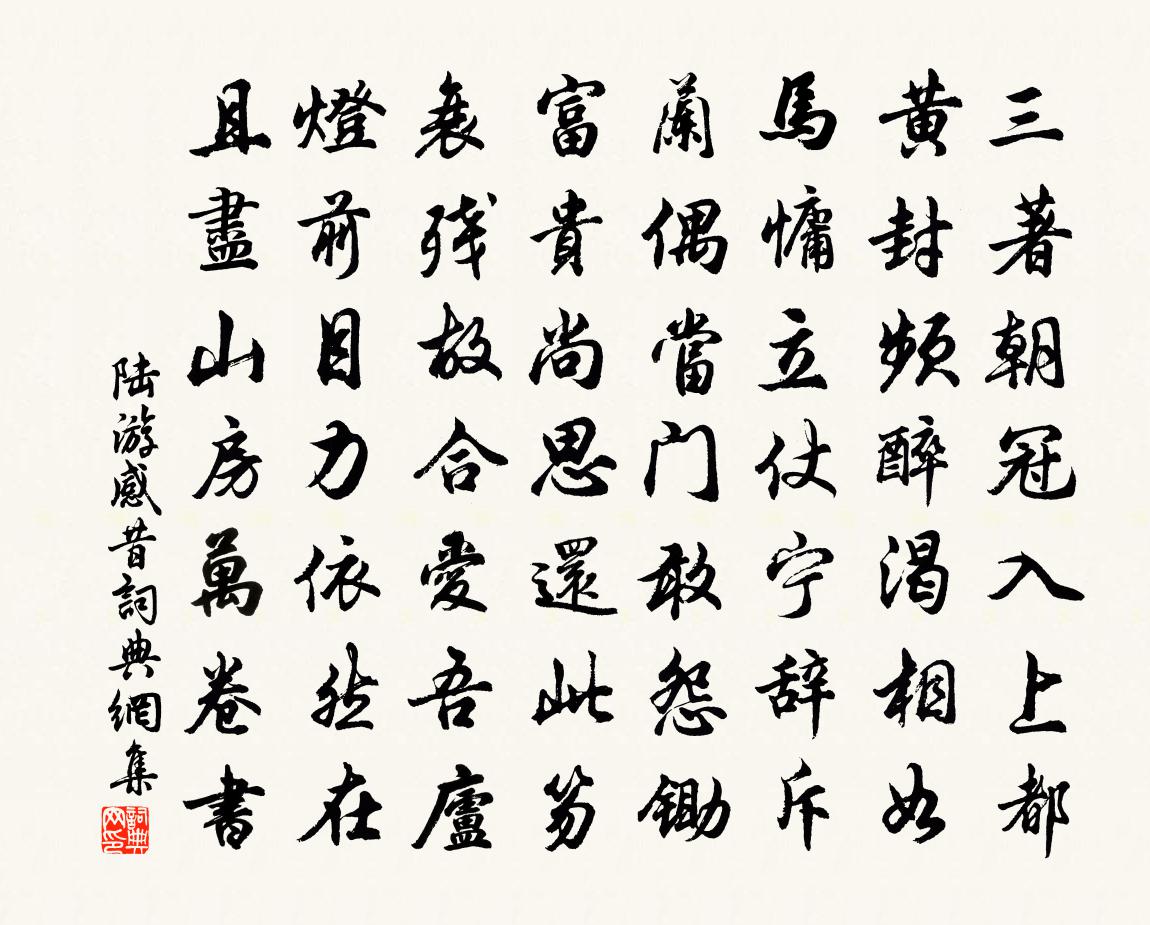 三著朝冠入上都
黄封頻醉渴相如
馬慵立仗宁辞斥
蘭偶當门敢怨鋤
富貴尚思還此笏
衰残故合愛吾廬
燈前目力依然在
且盡山房萬卷書
陆游感昔詞典網集
詞典网印